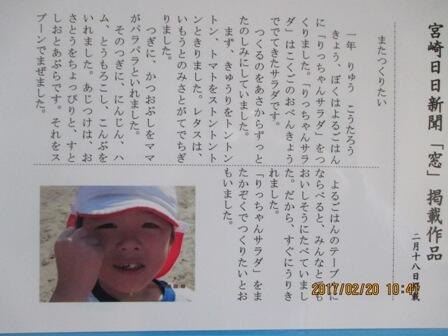 宮崎日日新聞「窓」掲載作品
二月十八日掲載
またつくりたい
一年　りゅう　こうたろう
きょう、ぼくはよるごはん
に「りっちゃんサラダ」をつ
くりました。「りっちゃんサラ
ダ」はこくごのおべんきょう
ででてきたサラダです。
つくるのをあさからずっと
たのしみにしていました。
まず、きゅうりをトントン
トン、トマトをストントント
ンときりました。レタスは、
いもうとのみさとがてでちぎ
りました。
つぎに、かつおぶしをママ
がパラパラといれました。
そのつぎに、にんじん、ハ
ム、とうもろこし、こんぶを
いれました。あじつけは、お
さとうをちょっぴりと、すと
しおとあぶらです。それをス
プーンでまぜました。
よるごはんのテーブルに
ならべると、みんなとても
おいしそうにたべていまし
た。だから、すぐにうりき
れました。
「りっちゃんサラダ」をま
たかぞくでつくりたいとお
もいました。
2017/02/20 10:4